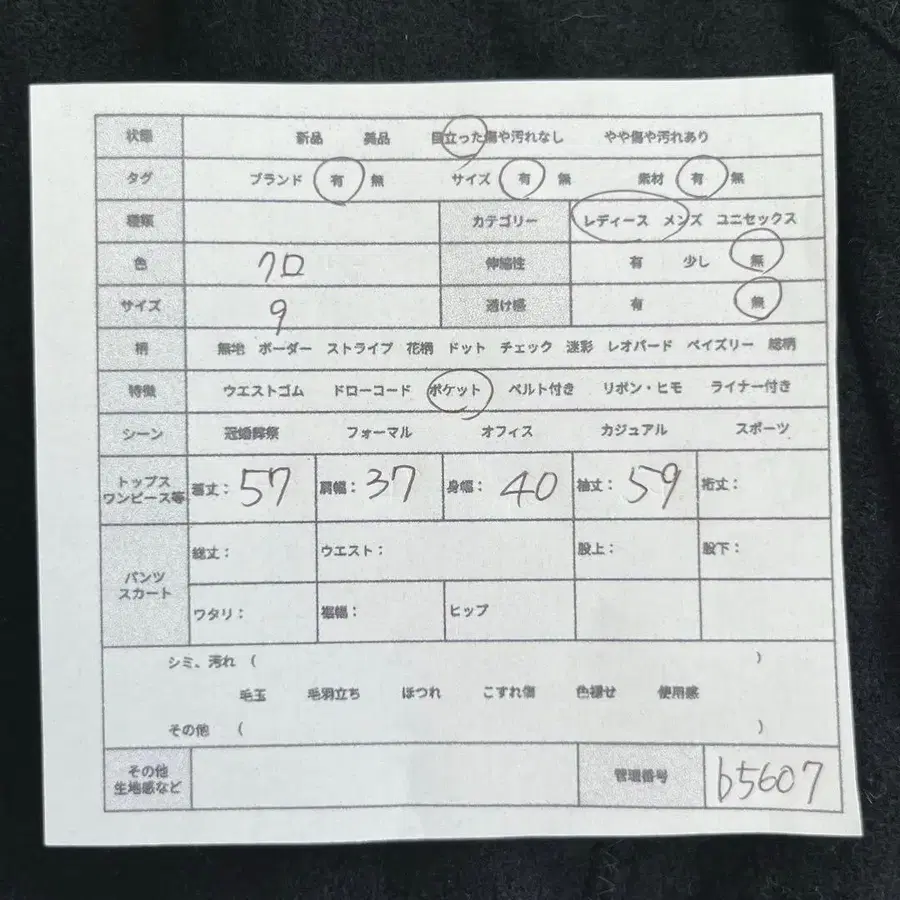 状態 新品 美品 目立った傷や汚れなし やや傷や汚れあり
タグ ブランド 有 無 サイズ 有 無 素材 有 無
種類 カテゴリー レディース メンズ ユニセックス
色 クロ 伸縮性 有 少し 無
サイズ 9 透け感 有 無
柄 無地 ボーダー ストライプ 花柄 ドット チェック 迷彩 レオパード ペイズリー 総柄
特徴 ウエストゴム ドローコード ポケット ベルト付き リボン・ヒモ ライナー付き
シーン 冠婚葬祭 フォーマル オフィス カジュアル スポーツ
トップス
ワンピース等 着丈：57 肩幅：37 身幅：40 袖丈：59 裄丈：
パンツ
スカート
総丈： ウエスト： 股上： 股下：
ワタリ： 裾幅： ヒップ
シミ、汚れ （ ）
毛玉 毛羽立ち ほつれ こすれ傷 色褪せ 使用感
その他 （ ）
その他
生地感など 管理番号 b5607